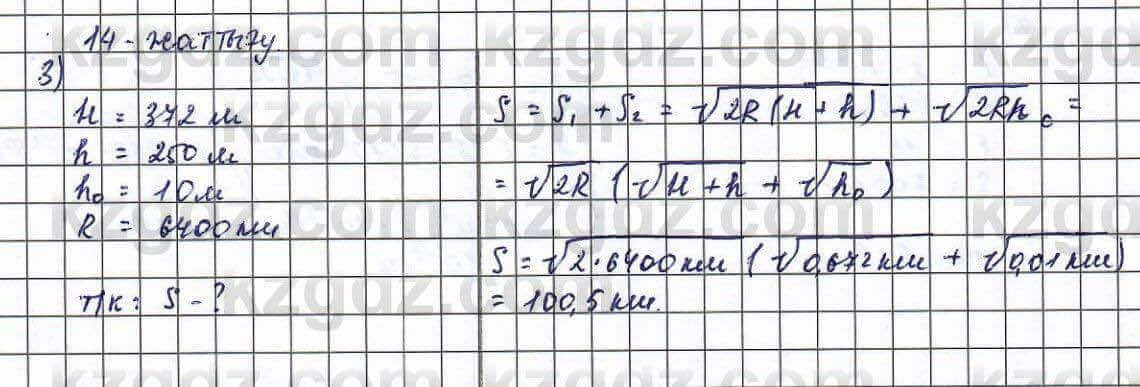 14-жаттығу
3)
H = 372 м
h = 250 м
h₀ = 10 м
R = 6400 км
Т/к: S - ?
S = S₁ + S₂ = √2R(H + h) + √2Rh₀ =
= √2R (√H + h + √h₀)
S = √2·6400 км (√0,672 км + √0,01 км)
= 100,5 км.
kzgdz.com